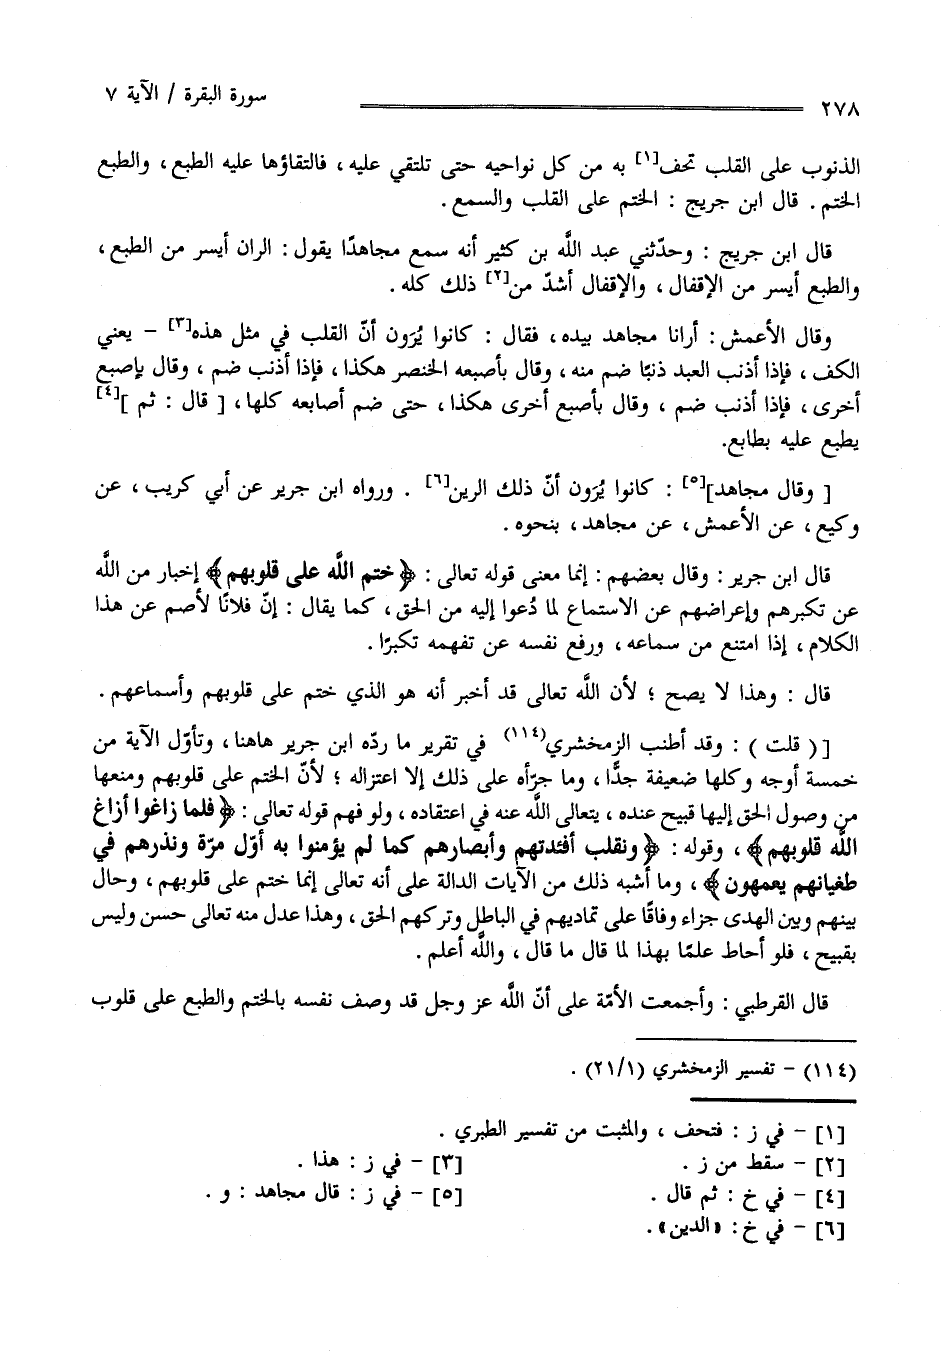 ٢٧٨ سورة البقرة / الآية ٧
الذنوب على القلب تحف[١] به من كل نواحيه حتى تلتقي عليه ، فالتقاؤها عليه الطبع ، والطبع
الختم . قال ابن جريج : الختم على القلب والسمع .
قال ابن جريج : وحدّثني عبد اللَّه بن كثير أنه سمع مجاهدًا يقول : الران أيسر من الطبع ،
والطبع أيسر من الإقفال ، والإقفال أشدّ من[٢] ذلك كله .
وقال الأعمش : أرانا مجاهد بيده ، فقال : كانوا يُرَون أنّ القلب في مثل هذه[٣] – يعني
الكف ، فإذا أذنب العبد ذنبًا ضم منه ، وقال بأصبعه الخنصر هكذا ، فإذا أذنب ضم ، وقال بإصبع
أخرى ، فإذا أذنب ضم ، وقال بأصبع أخرى هكذا ، حتى ضم أصابعه كلها ، [ قال : ثم ][٤]
يطبع عليه بطابع.
[ وقال مجاهد][٥] : كانوا يُرَون أنّ ذلك الرين[٦] . ورواه ابن جرير عن أبي كريب ، عن
وكيع ، عن الأعمش ، عن مجاهد ، بنحوه .
قال ابن جرير : وقال بعضهم : إنما معنى قوله تعالى : ﴿ختم اللَّه على قلوبهم﴾ إخبار من اللَّه
عن تكبرهم وإعراضهم عن الاستماع لما دُعوا إليه من الحق ، كما يقال : إنّ فلانًا لأصم عن هذا
الكلام ، إذا امتنع من سماعه ، ورفع نفسه عن تفهمه تكبرًا .
قال : وهذا لا يصح ؛ لأن اللَّه تعالى قد أخبر أنه هو الذي ختم على قلوبهم وأسماعهم .
[( قلت ) : وقد أطنب الزمخشري(١١٤) في تقرير ما ردّه ابن جرير هاهنا ، وتأوّل الآية من
خمسة أوجه وكلها ضعيفة جدًّا ، وما جرّأه على ذلك إلا اعتزاله ؛ لأنّ الختم على قلوبهم ومنعها
من وصول الحق إليها قبيح عنده ، يتعالى اللَّه عنه في اعتقاده ، ولو فهم قوله تعالى : ﴿فلما زاغوا أزاغ
اللَّه قلوبهم﴾ ، وقوله : ﴿ونقلب أفئدتهم وأبصارهم كما لم يؤمنوا به أوّل مرّة ونذرهم في
طغيانهم يعمهون﴾ ، وما أشبه ذلك من الآيات الدالة على أنه تعالى إنما ختم على قلوبهم ، وحال
بينهم وبين الهدى جزاء وفاقًا على تماديهم في الباطل وتركهم الحق ، وهذا عدل منه تعالى حسن وليس
بقبيح ، فلو أحاط علمًا بهذا لما قال ما قال ، واللَّه أعلم .
قال القرطبي : وأجمعت الأمّة على أنّ اللَّه عز وجل قد وصف نفسه بالختم والطبع على قلوب
(١١٤) – تفسير الزمخشري (٢١/١) .
[١] – في ز : فتحف ، والمثبت من تفسير الطبري .
[٢] – سقط من ز . [٣] – في ز : هذا .
[٤] – في خ : ثم قال . [٥] – في ز : قال مجاهد : و .
[٦] – في خ : «الدين» .